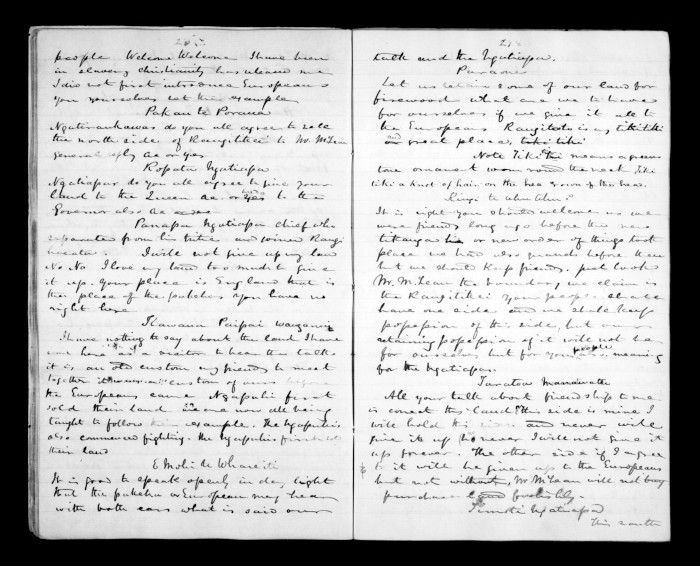 people Welcome Welcome I have been
in slavery christianity has released me
I did not first introduce Europeans
you yourselves set the example
Ngatiraukawas do you all agree to sale
the north side of Rangitikei to Mr McLean
general reply ae or yes
Ropata Ngatiapa
Ngatiapas do you all agree to give your
land to the Queen ae or yes to the
Governor also ae
Panapa Ngatiapa chief who
separated from his tribe and joined Rangi
I will not give up my land
No No I love my land too much to give
it up. Your place is England that is
the place of the pakehas you have no
right here
Kawana Paipai
I have nothing to say about the land I have
come here as a visitor to hear the talk
it is an old custom my friends to meet
together it was custom of ours before
the Europeans came Ngapuhi first
sold their land we are now all being
taught to follow example. The Ngapuhis
also commenced fighting. the Ngapuhis first
their land
It is good to speak openly in day light
that the pakeha or European may hear
with both ears what is said our
21
talk and the Ngatiapa.
Paraone
Let us some of our land for
firewood what are we to have
for ourselves if we give it all to
the Europeans is a tikitiki
great place,
Note Tiki means a green
stone ornament worn round the neck, tiki
tiki a knot of hair on the crown of the head.
Kingi te
It is right you should welcome us we
were friends long ago before the new
tikanga or new order of things took
place we had also quarrels before then
but we should keep friends. just look
Mr. McLean the boundary we claim is
the Rangitikei your people shall
have one side and we shall keep
possession of this side, but our
retaining possession of it will not be
for ourselves but for your people meaning
for the Ngatiapas.
Taratoa Manawatu
All your talk about friendship to me
is correct this land this side is mine I
will hold this side and never will
give it up no never I will not give it
up forever. The other side if I agree
to it will be given up to the Europeans
but not without, Mr McLean will not buy
purchase land foolishly.
Ngatiapa